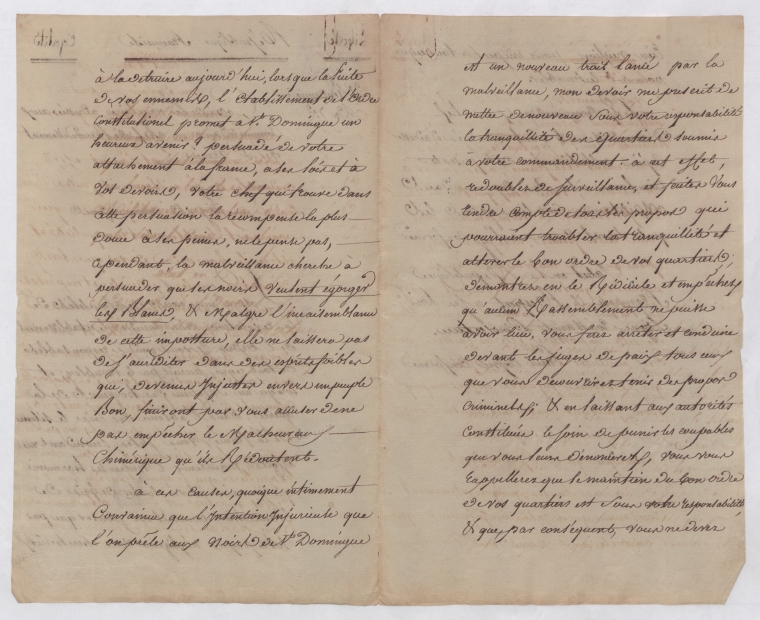 à la detruire aujourd'hui, lorsque la fuite
de vos ennemis, l'établissement de l'ordre
Constitutionel promet à St. Domingue un
heureux avenir? persuadé de votre
attachement à la france, à ses loix et à
vos devoirs, votre chef qui trouve dans
cette persuation la récompense la plus
douce à ses peines, ne le pense pas,
Cependant, la malveillance cherche à
persuader que les noirs veulent egorger
les Blancs, & Malgré l'invraisemblance
de cette imposture, elle ne laissera pas
de s'accréditer dans des esprits foibles
que, devenus Injustes envers un peuple
Bon, finiront par vous accuser de ne
pas empêcher le Malheureux
Chimérique qu'ils Redoutent.
à ces causes, quoique intimement
Convaincu que l'Intention Injurieuse que
l'on prête aux Noirs de St. Domingue
est un nouveau trait lancé par la
malveillance, mon devoir me prescrit de
mettre de nouveau sous votre responsabilité
la tranquillité des quartiers soumis
à votre commandement. à cet effet,
redoublés de surveillance, et faites vous
rendre compte de tous les propos que
pourraient troubler la tranquillité et
altérer le bon ordre de vos quartiers;
démontrés en le Ridicule et empêchés
qu'aucun Rassemblement ne puisse
avoir lieu, vous ferez arrêter et conduire
devant les juges de paix tous ceux
que vous decouvrirez tenir des propos
criminels; & en laissant aux autorités
Constituées le soin de punir les coupables
que vous leurs dénoncerez, vous vous
rappellerez que le maintien du bon ordre
de vos quartiers est sous votre responsabilité,
& que par conséquent, vous ne devez